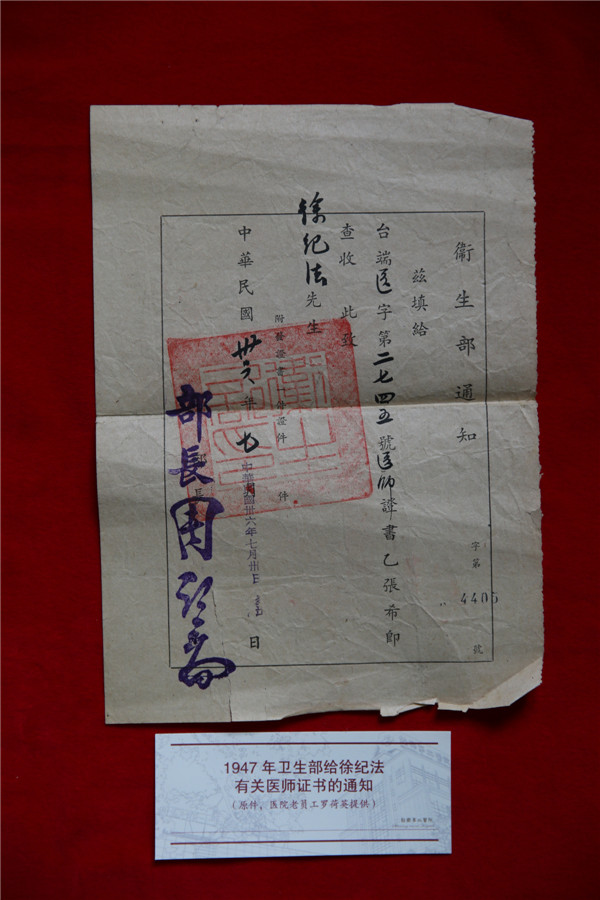 衞生部通知
字第4405號
茲填給
台端医字第二七四五號医师證書乙張希即
查收 此致
徐纪法先生
附發證書一件證件 件
中華民國卅六年七月 日
中華民國卅六年七月卅日
部長
部長周詒春
1947 年卫生部给徐纪法
有关医师证书的通知
（原件，医院老员工罗荷英提供）